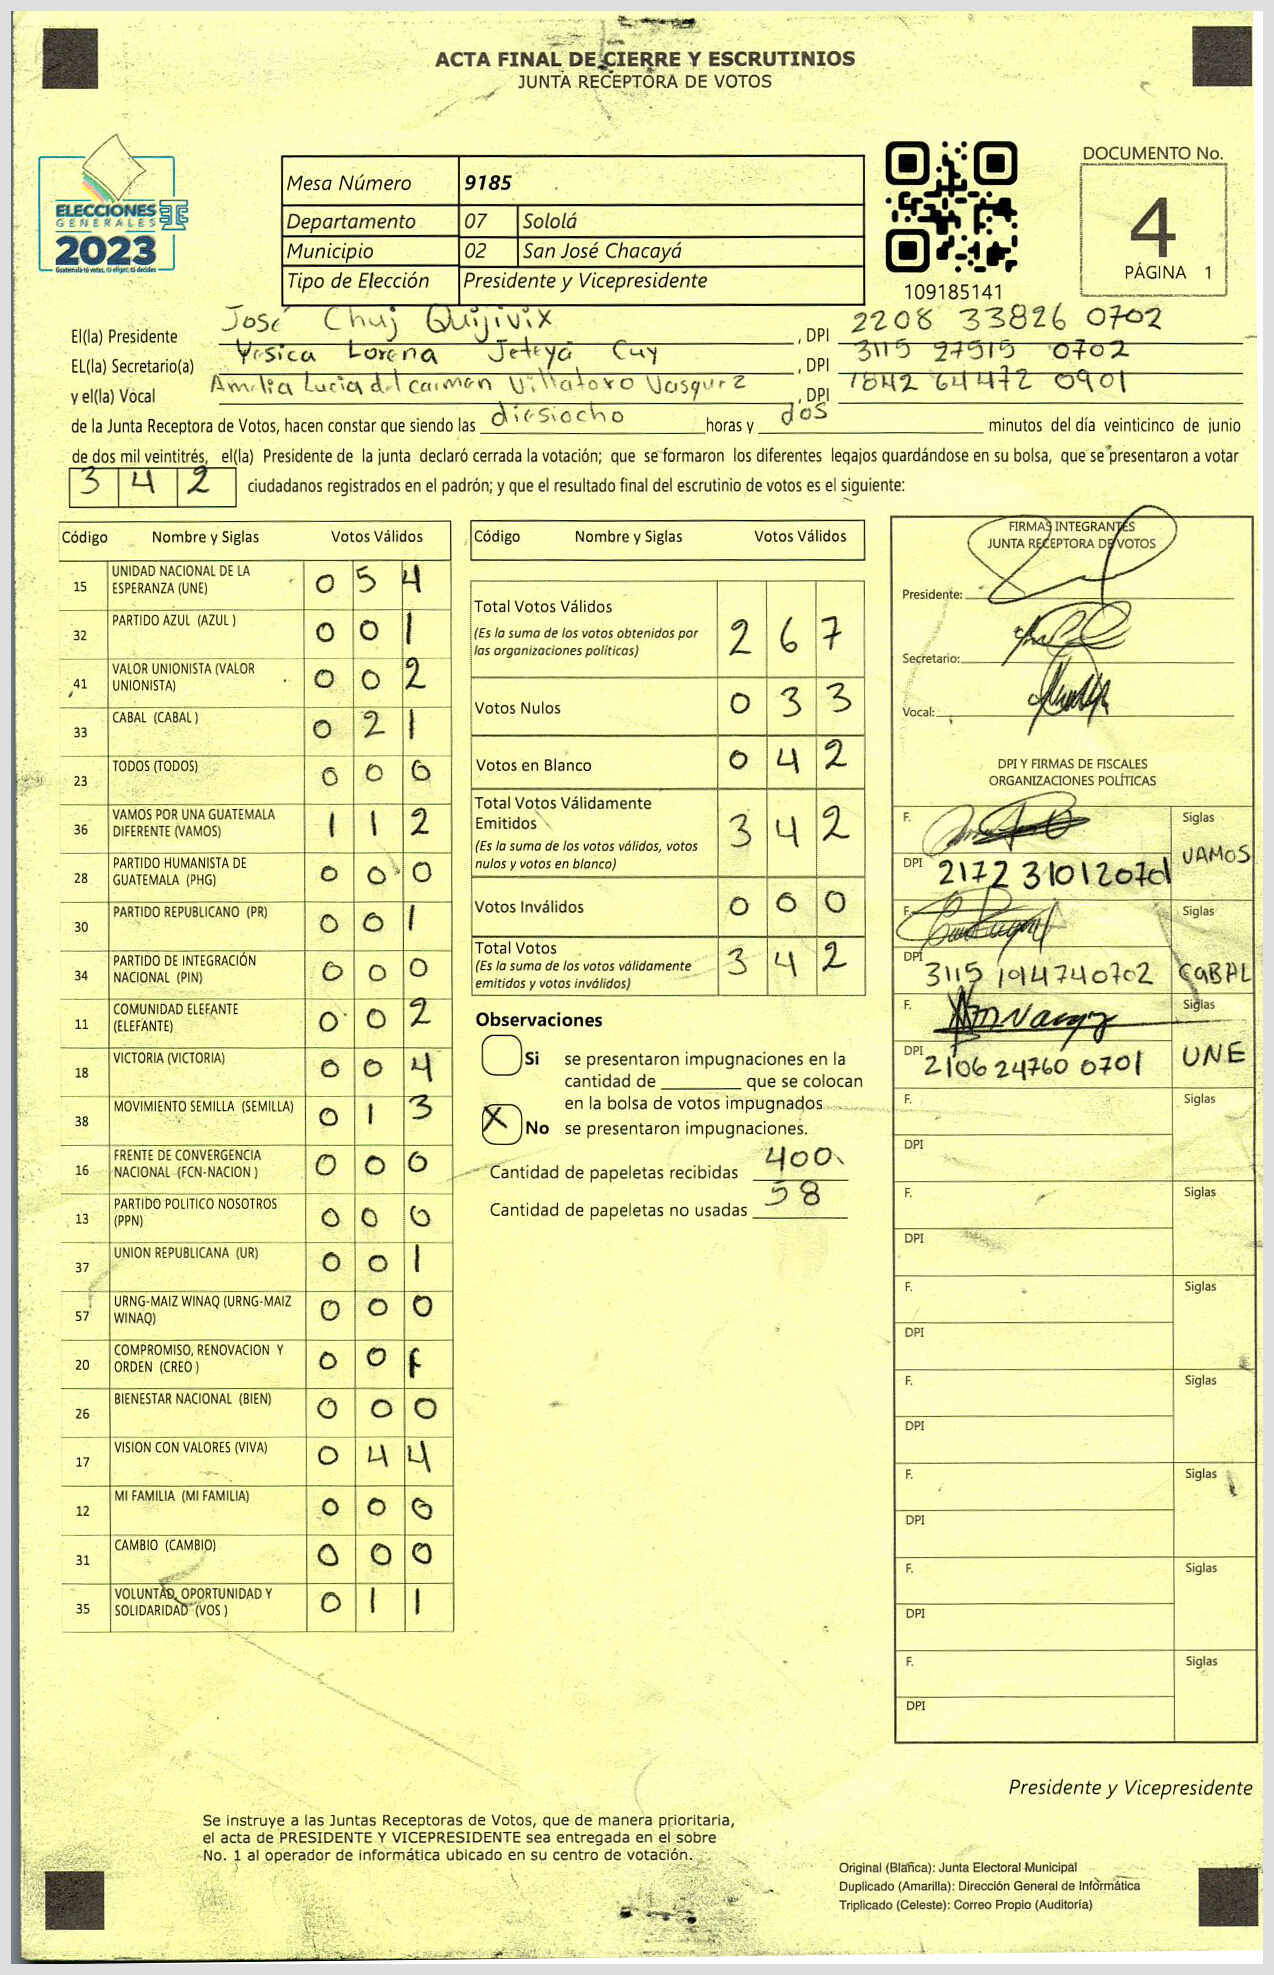 ACTA FINAL DE CIERRE Y ESCRUTINIOS
JUNTA RECEPTORA DE VOTOS
ELECCIONES
GENERALES
2023
Guatemala tú votas, tú eliges, tú decides
Mesa Número 9185
Departamento 07 Sololá
Municipio 02 San José Chacayá
Tipo de Elección Presidente y Vicepresidente
109185141
DOCUMENTO No.
4
PÁGINA 1
El(la) Presidente José Chuj Quijivix , DPI 2208 33826 0702
EL(la) Secretario(a) Yesica Lorena Jeteyá Cuy , DPI 3115 27515 0702
y el(la) Vocal Amilia Lucia del carmen Villatoro Vasquez , DPI 1842 64472 0901
de la Junta Receptora de Votos, hacen constar que siendo las diesiocho horas y dos minutos del día veinticinco de junio
de dos mil veintitrés, el(la) Presidente de la junta declaró cerrada la votación; que se formaron los diferentes legajos guardándose en su bolsa, que se presentaron a votar
342 ciudadanos registrados en el padrón; y que el resultado final del escrutinio de votos es el siguiente:
Código Nombre y Siglas Votos Válidos
15 UNIDAD NACIONAL DE LA ESPERANZA (UNE) 0 5 4
32 PARTIDO AZUL (AZUL ) 0 0 1
41 VALOR UNIONISTA (VALOR UNIONISTA) 0 0 2
33 CABAL (CABAL ) 0 2 1
23 TODOS (TODOS) 0 0 0
36 VAMOS POR UNA GUATEMALA DIFERENTE (VAMOS) 1 1 2
28 PARTIDO HUMANISTA DE GUATEMALA (PHG) 0 0 0
30 PARTIDO REPUBLICANO (PR) 0 0 1
34 PARTIDO DE INTEGRACIÓN NACIONAL (PIN) 0 0 0
11 COMUNIDAD ELEFANTE (ELEFANTE) 0 0 2
18 VICTORIA (VICTORIA) 0 0 4
38 MOVIMIENTO SEMILLA (SEMILLA) 0 1 3
16 FRENTE DE CONVERGENCIA NACIONAL (FCN-NACION ) 0 0 0
13 PARTIDO POLITICO NOSOTROS (PPN) 0 0 0
37 UNION REPUBLICANA (UR) 0 0 1
57 URNG-MAIZ WINAQ (URNG-MAIZ WINAQ) 0 0 0
20 COMPROMISO, RENOVACION Y ORDEN (CREO ) 0 0 1
26 BIENESTAR NACIONAL (BIEN) 0 0 0
17 VISION CON VALORES (VIVA) 0 4 4
12 MI FAMILIA (MI FAMILIA) 0 0 0
31 CAMBIO (CAMBIO) 0 0 0
35 VOLUNTAD, OPORTUNIDAD Y SOLIDARIDAD (VOS ) 0 1 1
Código Nombre y Siglas Votos Válidos
Total Votos Válidos 2 6 7
(Es la suma de los votos obtenidos por
las organizaciones políticas)
Votos Nulos 0 3 3
Votos en Blanco 0 4 2
Total Votos Válidamente
Emitidos 3 4 2
(Es la suma de los votos válidos, votos
nulos y votos en blanco)
Votos Inválidos 0 0 0
Total Votos 3 4 2
(Es la suma de los votos válidamente
emitidos y votos inválidos)
Observaciones
Si se presentaron impugnaciones en la
cantidad de ________ que se colocan
en la bolsa de votos impugnados
X No se presentaron impugnaciones.
Cantidad de papeletas recibidas 400
Cantidad de papeletas no usadas 58
FIRMAS INTEGRANTES
JUNTA RECEPTORA DE VOTOS
Presidente:
Secretario:
Vocal:
DPI Y FIRMAS DE FISCALES
ORGANIZACIONES POLÍTICAS
F. Siglas VAMOS
DPI 2172 31012 0701
F. Siglas CABAL
DPI 3115 194740702
F. Siglas UNE
DPI 2106 24760 0701
F. Siglas
DPI
F. Siglas
DPI
F. Siglas
DPI
F. Siglas
DPI
F. Siglas
DPI
F. Siglas
DPI
F. Siglas
DPI
Presidente y Vicepresidente
Se instruye a las Juntas Receptoras de Votos, que de manera prioritaria,
el acta de PRESIDENTE Y VICEPRESIDENTE sea entregada en el sobre
No. 1 al operador de informática ubicado en su centro de votación.
Original (Blanca): Junta Electoral Municipal
Duplicado (Amarilla): Dirección General de Informática
Triplicado (Celeste): Correo Propio (Auditoría)